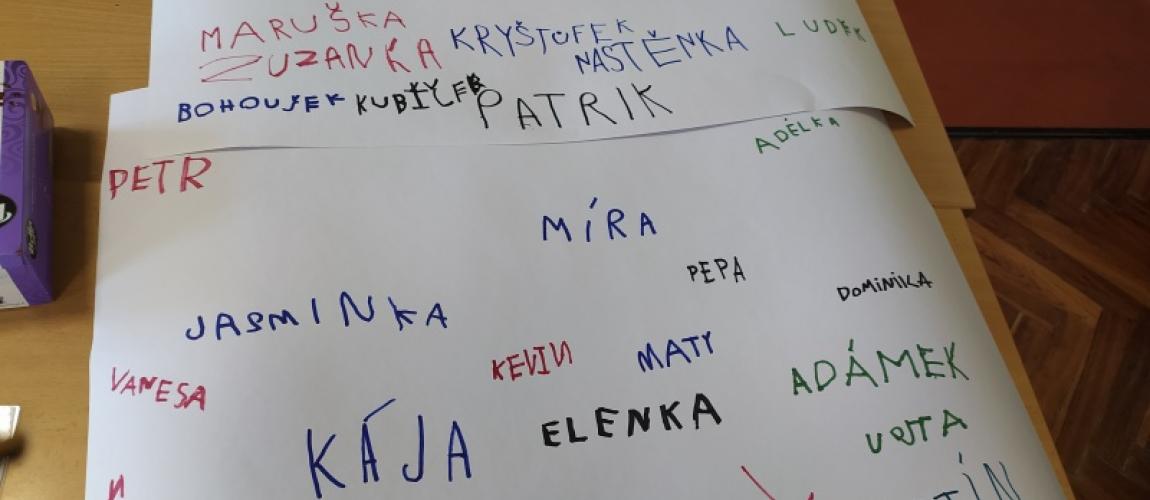 MARUŠKA
ZUZANKA KRYŠTOFEK NASTĚNKA LUDĚK
BOHOUŠEK KUBÍČEK PATRIK
ADÉLKA
PETR
MÍRA
PEPA
DOMINIKA
JASMINKA
KEVIN MATY
ADÁMEK
VANESA
ELENKA
KÁJA
VOJTA